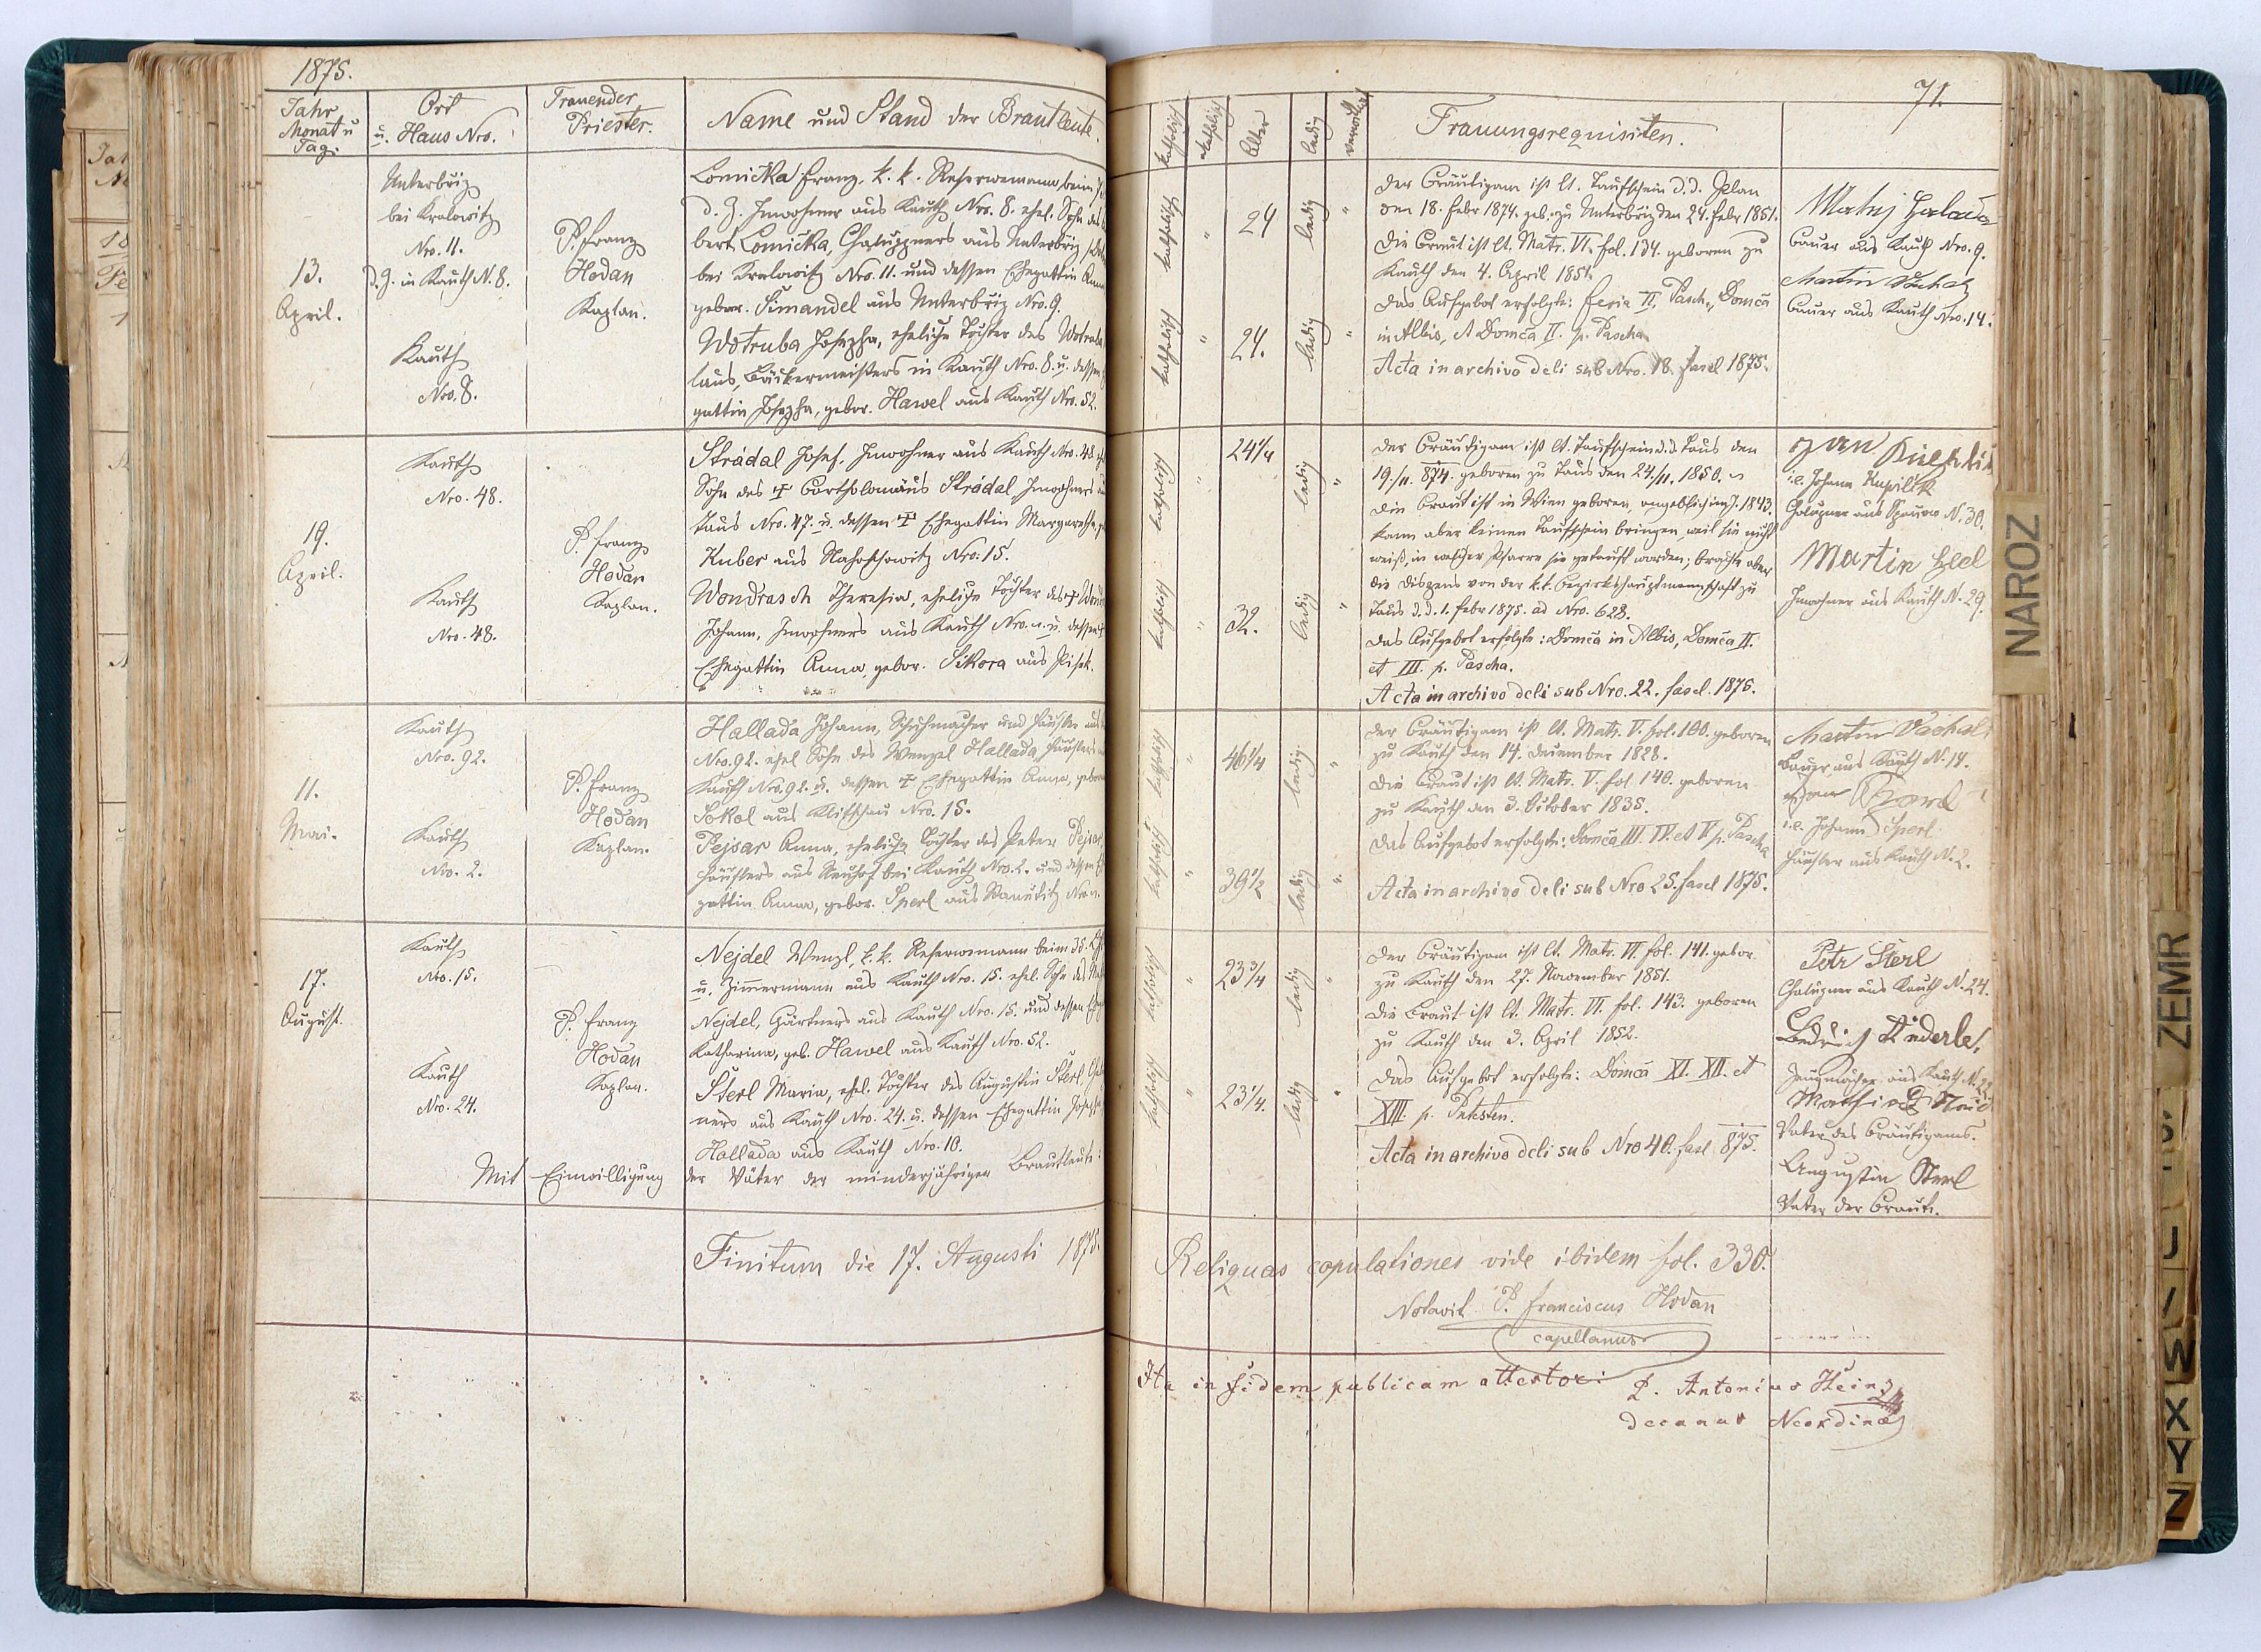 1875.
Jahr
Monat u
Tag.
Ort
u. Haus Nro.
Trauender
Priester.
Name und Stand der Brautleute.
13.
April.
Unterbřiz
bei Kralowitz
Nro. 11.
d. Z. in Kauth N. 8.
Kauth
Nro. 8.
P. Franz
Hodan
Kaplan.
Lomička Franz, k. k. Reservemann beim
d. Z. Inwohner aus Kauth Nro. 8. ehel. Sohn des
bert Lomička, Chaluppners aus Unterbřiz
bei Kralowitz Nro. 11. und dessen Ehegattin Anna
gebor. Šimandel aus Unterbřiz Nro. 9.
Wotruba Josepha, eheliche Tochter des Wotruba
laus, Bäckermeisters in Kauth Nro. 8. u. dessen
gattin Josepha, gebor. Hawel aus Kauth Nro. 52.
19.
April.
Kauth
Nro. 48.
Kauth
Nro. 48.
P. Franz
Hodan
Kaplan.
Strádal Josef, Inwohner aus Kauth Nro. 48
Sohn des † Bartholomäus Strádal Inwohners
Taus Nro. 47. u. dessen † Ehegattin Margaretha,
Kuber aus Nahoschowitz Nro. 15.
Wondrasch Theresia, eheliche Tochter des †
Johann, Inwohners aus Kauth Nro. u. dessen
Ehegattin Anna, gebor. Sikora aus Pisek.
11.
Mai.
Kauth
Nro. 92.
Kauth
Nro. 2.
P. Franz
Hodan
Kaplan.
Hallada Johann, Schuhmacher und Häusler aus
Nro. 92. ehel Sohn des Wenzel Hallada, Häuslers
Kauth Nro. 92. u. dessen † Ehegattin Anna, gebor
Sokol aus Klitschau Nro. 15.
Pejsar Anna, eheliche Tochter des Peter Pejsar
Häuslers aus Neuhof bei Kauth Nro. 2. und dessen
gattin Anna, gebor. Sperl aus
17.
August.
Kauth
Nro. 15.
Kauth
Nro. 24.
P. Franz
Hodan
Kaplan.
Nejdel Wenzl, k. k. Reservemann beim 35.
u. Zimmermann aus Kauth Nro. 15. ehel. Sohn des
Nejdel, Gärtners aus Kauth Nro. 15. und dessen
Katharina, geb. Hawel aus Kauth Nro. 52.
Šterl Maria, ehel. Tochter des Augustin Šterl,
ners aus Kauth Nro. 24. u. dessen Ehegattin Josepha
Hallada aus Kauth Nro. 10.
Mit Einwilligung der Väter der minderjährigen Brautleute:
Finitum die 17. Augusti 1875.
71.
katholisch
Alter
ledig
Trauungsrequisiten.
katholisch
"
24
ledig
"
katholisch
"
24.
ledig
"
Der Bräutigam ist lt. Taufschein d. d. Plan
den 18. Febr 1874. geb. zu Unterbřiz den 24. Febr 1851.
Die Braut ist lt. Matr. VI. fol. 134. geboren zu
Kauth den 4. April 1851.
Das Aufgebot erfolgte: feria II. Pasch., Domca
in Albis, et Domca II. p. Pascha
Acta in archivo dcli sub Nro. 18. fascl 1875.
Bauer aus Kauth Nro. 9.
Martin
Bauer aus Kauth Nro. 14.
katholisch
"
24 1/4
ledig
"
katholisch
"
32.
ledig
"
Der Bräutigam ist lt. Taufschein d. d. Taus den
19./11. 874. geboren zu Taus den 24./11. 1850.
Die Braut ist in Wien geboren, angeblich im J. 1843.
kann aber keinen Taufschein bringen, weil sie nicht
weiß, in welcher Pfarre sie getauft worden; brachte aber
die Dispens von der k. k. Bezirkshauptmannschaft zu
Taus d. d. 1. Febr 1875. ad Nro. 628.
Das Aufgebot erfolgte: Domca in Albis, Domca II.
et III. p. Pascha.
Acta in archivo dcli sub Nro. 22. fascl. 1875.
i. e. Johann Kupilik
Chalupner aus N. 30.
Martin
Inwohner aus Kauth N. 29.
katholisch
"
46 1/4
ledig
"
katholisch
"
39 1/2
ledig
"
Der Bräutigam ist lt. Matr. V. fol. 100. geboren
zu Kauth den 14. Dezember 1828.
Die Braut ist lt. Matr. V. fol 140. geboren
zu Kauth den 3. Oktober 1835.
Das Aufgebot erfolgte: Domca III. IV. et V. p. Pascha
Acta in archivo dcli sub Nro 25. fascl 1875.
Martin
Bauer aus Kauth N. 14.
i. e. Johann Sperl
Häusler aus Kauth N. 2.
katholisch
"
23 3/4
ledig
"
katholisch
"
23 1/4.
ledig
"
Der Bräutigam ist lt. Matr. VI. fol. 141. gebor.
zu Kauth den 27. November 1851.
Die Braut ist lt. Matr. VI. fol. 143. geboren
zu Kauth den 3. April 1852.
Das Aufgebot erfolgte: Domca XI. XII. et
XIII. p. Pntcsten.
Acta in archivo dcli sub Nro 40. fascl 875.
Petr Šterl
Chalupner aus Kauth N. 24.
Zeugmacher aus Kauth N. 22
Vater des Bräutigams.
Augustin Sterl
Vater der Braut.
Reliquas copulationes vide ibidem fol. 330.
Notavit P. Franciscus Hodan
capellanus
Ita in fidem publicam attestor: P. Antonius Heinz
decanus Neogdinae
NAROZ
ZEMR
J
V
W
X
Y
Z